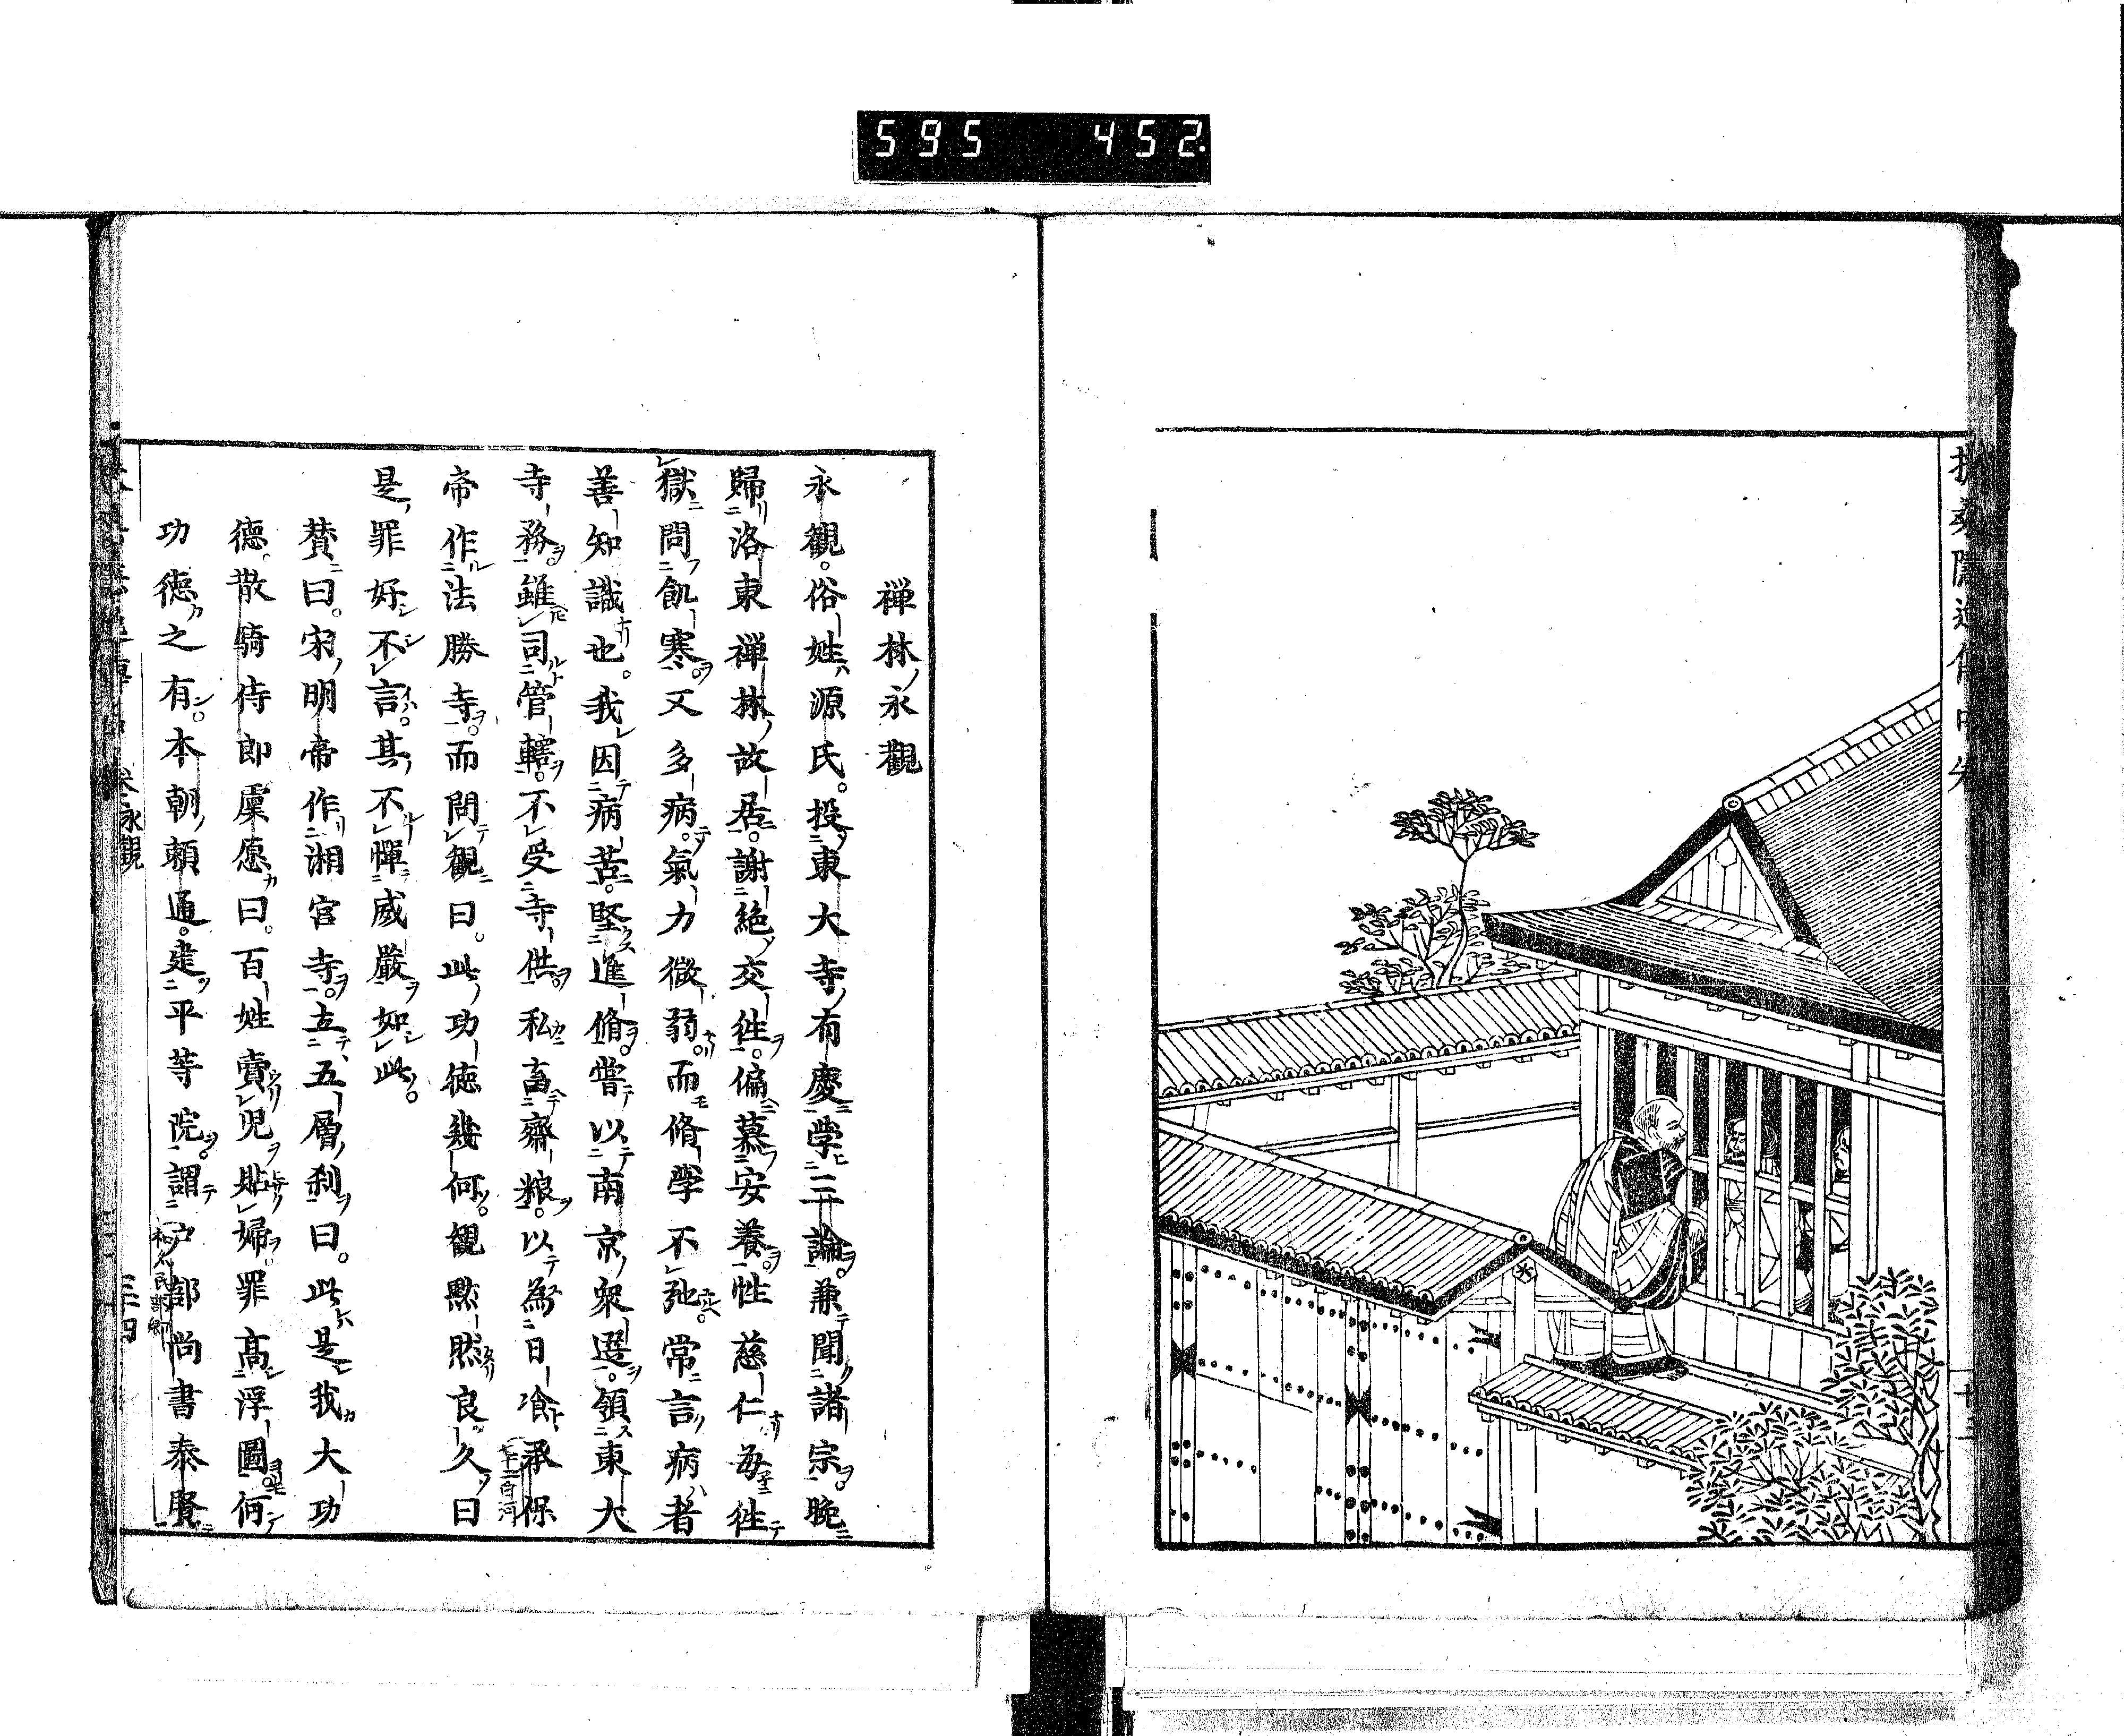 595 452.
禅林ノ永觀
永觀。俗姓ハ源氏。投東大寺ノ有慶ニ学ヒ三論ヲ。兼テ聞ク諸宗ヲ。晩ニ
歸リ洛東禅林ノ故居ニ。謝絶ノ交徃ヲ。偏ニ慕フ安養ヲ。性慈仁ナリ毎ニ徃テ
獄ニ問フ飢寒ヲ。又多病ニテ。氣力微弱ナリ。而モ脩學不弛。常ニ言ノ病ハ者
善知識也。我因テ病苦ニ。堅ク進脩ヲ。嘗テ以テ南京ノ衆選ヲ。領ス東大
寺ノ務ヲ。雖司ルト管轄ヲ。不受寺供ヲ。私ニ畜ヘテ齋粮ヲ。以テ為日飡ト。承保
帝作ル法勝寺ヲ。而問テ觀ニ曰。此ノ功徳幾何ソ。觀默然良久ノ曰
是ノ罪好シ不シ言ハ。其ノ不ルヿ憚ラ威嚴ヲ如シ此ノ。
賛ニ曰。宋ノ明帝作リ湘宮寺ヲ。立テ五層ノ刹ヲ曰。此ハ是レ我カ大功
德。散騎侍郎虞愿カ曰。百姓賣リ児ヲ貼婦ヲ。罪髙シ浮圖ヨリモ。何ノ
功徳カ之有ン。本朝ノ頼通。建テ平等院ヲ。謂テ戸部尚書泰賢ニ
七十二白河
和名民部卿
永觀
三十四
十三